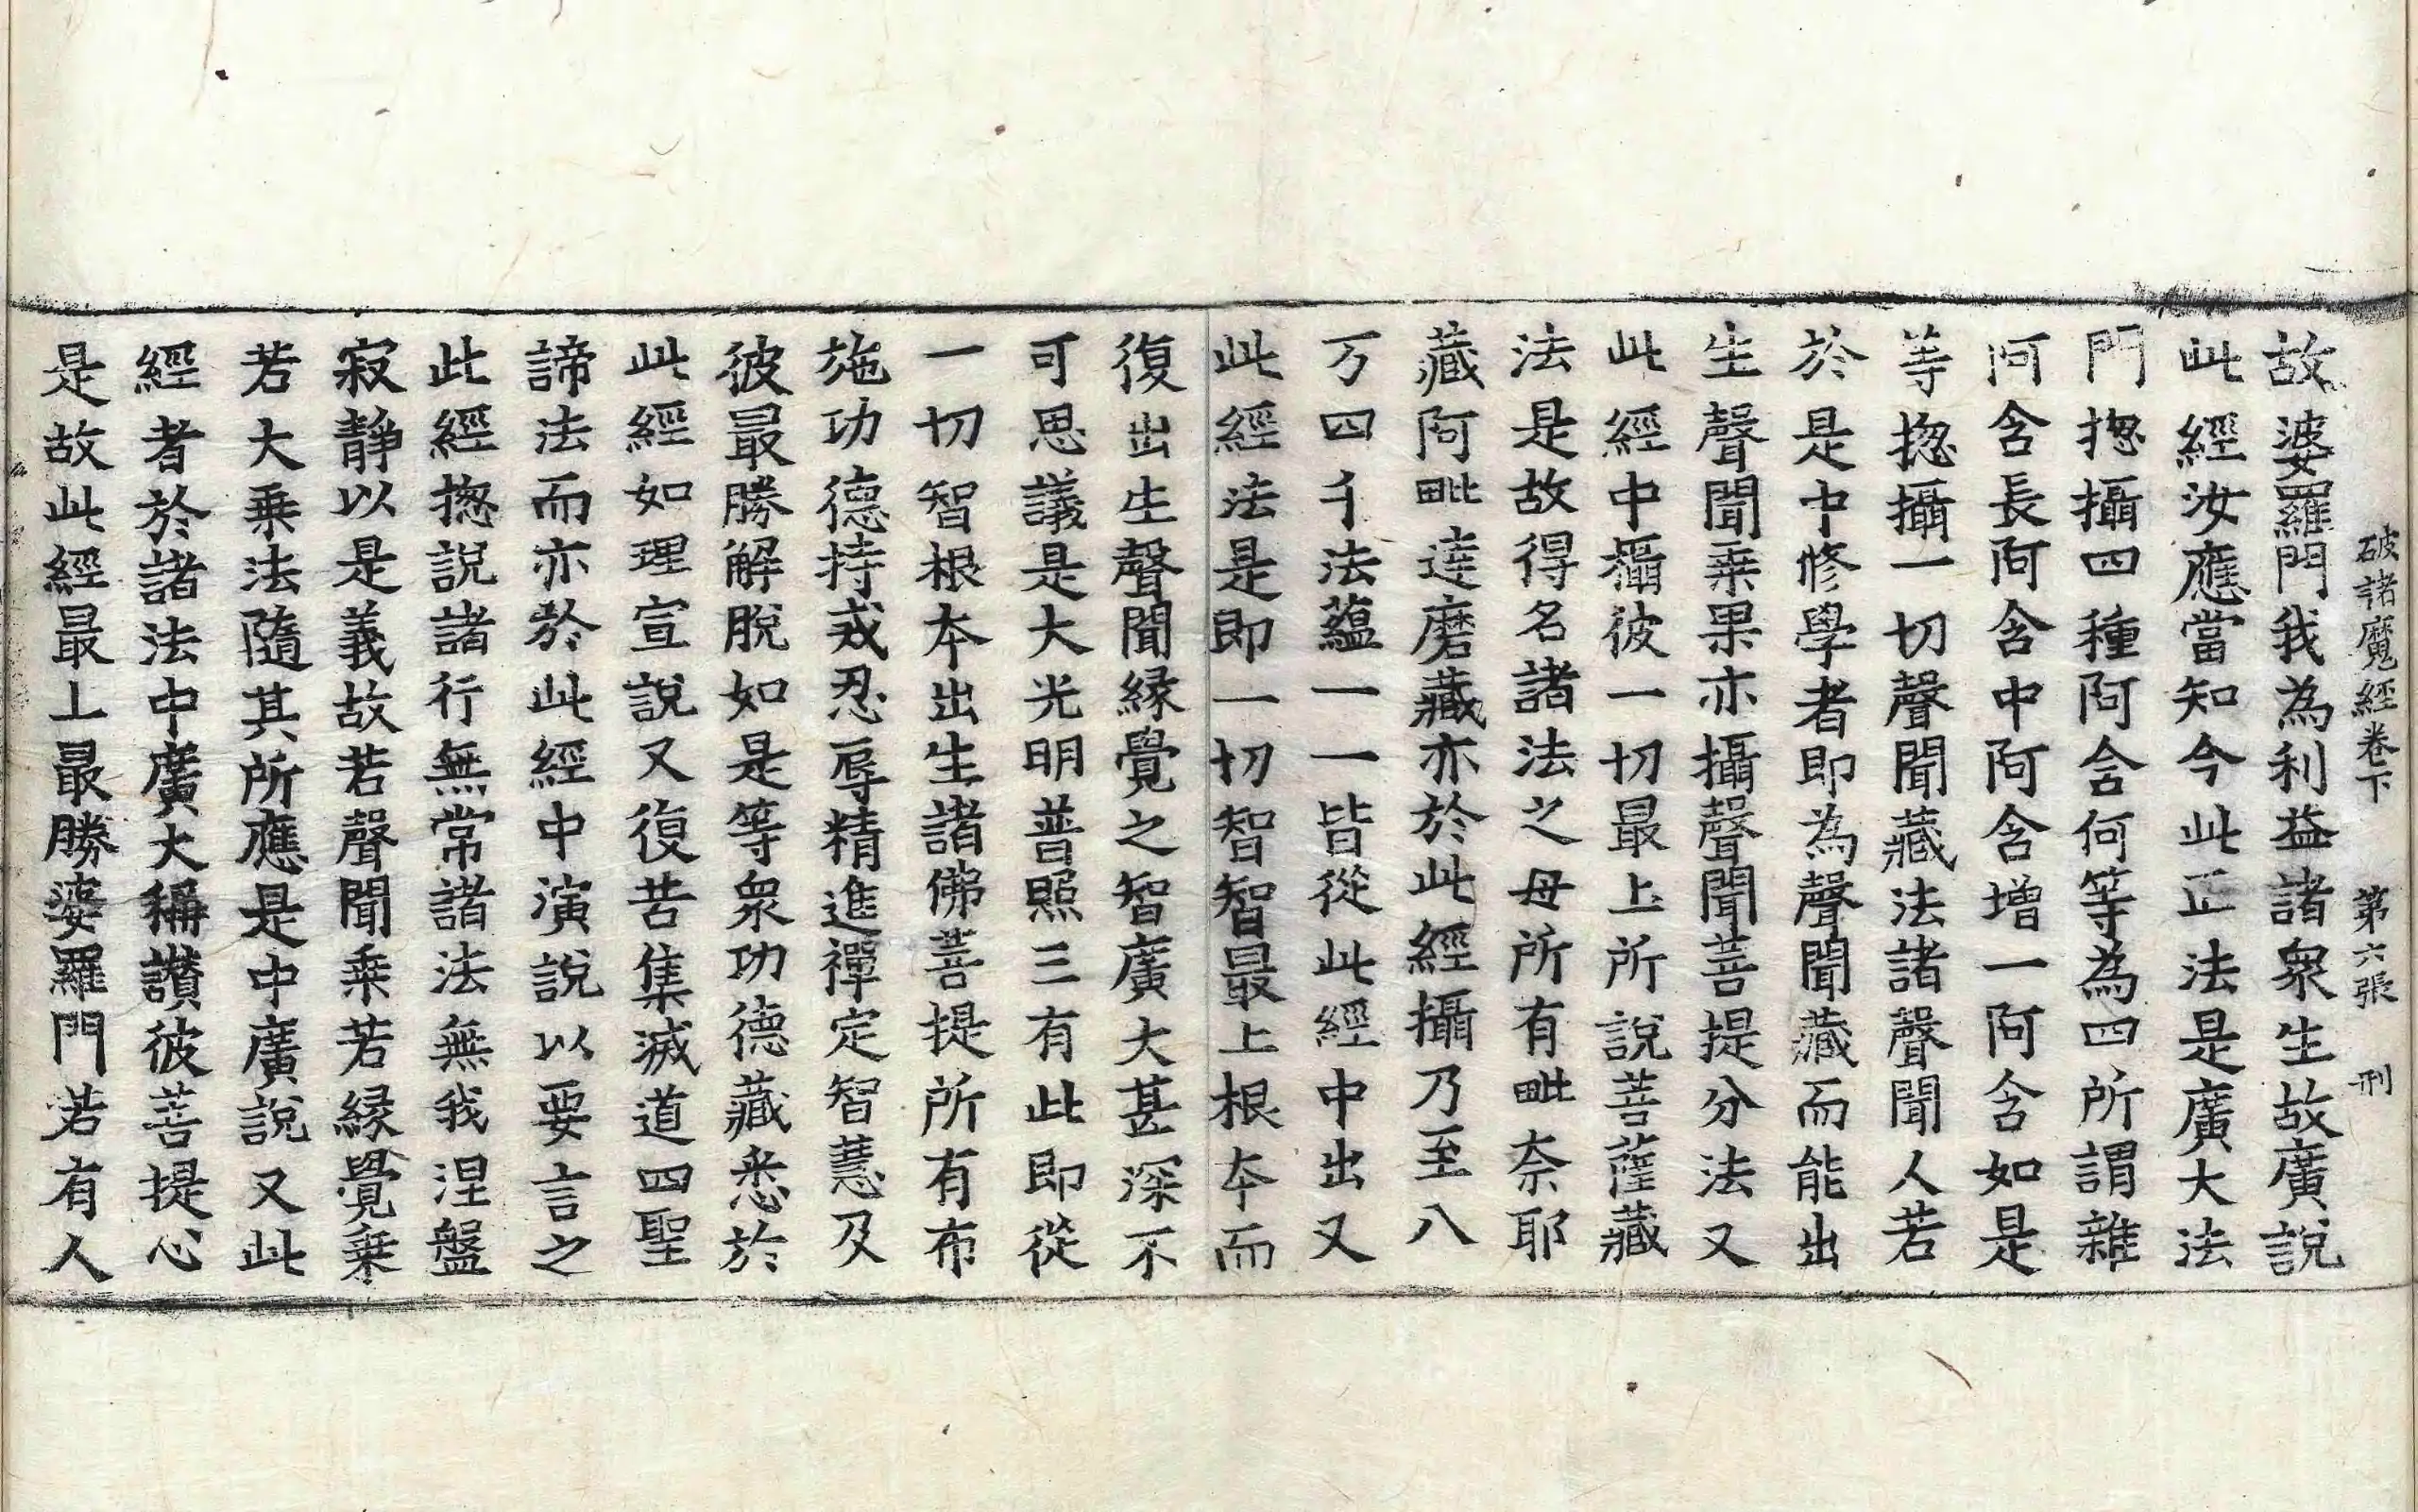 破諸魔經卷下 第六張 刑
故婆羅門我為利益諸衆生故廣說
此經汝應當知今此正法是廣大法
門揔攝四種阿含何等為四所謂雜
阿含長阿含中阿含增一阿含如是
等揔攝一切聲聞藏法諸聲聞人若
於是中修學者即為聲聞藏而能出
生聲聞乗果亦攝聲聞菩提分法又
此經中攝彼一切最上所說菩薩藏
法是故得名諸法之母所有毗奈耶
藏阿毗達磨藏亦於此經攝乃至八
万四千法蘊一一皆從此經中出又
此經法是即一切智智最上根本而
復出生聲聞緣覺之智廣大甚深不
可思議是大光明普照三有此即從
一切智根本出生諸佛菩提所有布
施功德持戒忍辱精進禪定智慧及
彼最勝解脫如是等衆功德藏悉於
此經如理宣說又復苦集滅道四聖
諦法而亦於此經中演說以要言之
此經揔說諸行無常諸法無我涅盤
寂靜以是義故若聲聞乗若緣覺乗
若大乗法隨其所應是中廣說又此
經者於諸法中廣大稱讚彼菩提心
是故此經最上最勝婆羅門若有人